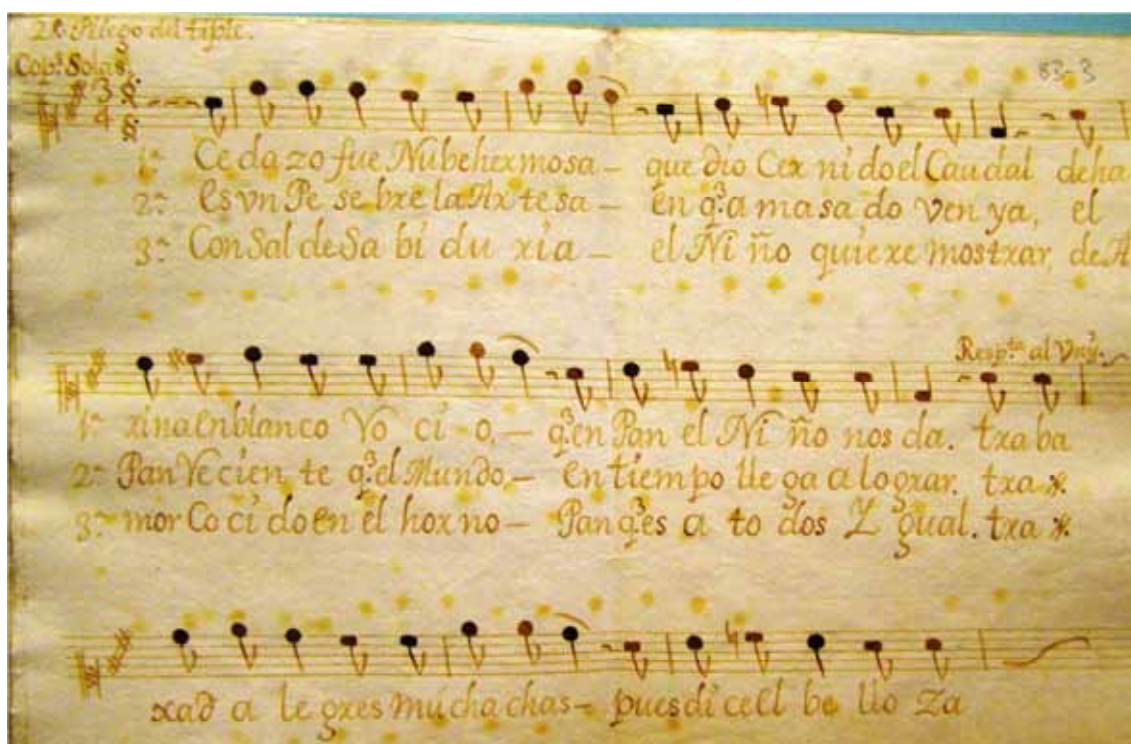 2.º Pliego del tiple.
Cop.s Solas.
83-3
3
4
1.ª Cedazo fue Nube hermosa – que dio Cer ni do el Caudal de ha
2.ª es vn Pe se bre la Ar te sa – en q.e a ma sa do Ven ya, el
3.ª Con Sal de Sa bi du ria – el Ni ño quiere mostrar, de A
Resp.ta al Vny.
1.ª rina en blanco Ro ci – o, – q.e en Pan el Ni ño nos da. tra ba
2.ª Pan Recien te q.e el Mundo – en tiempo lle ga a lograr. tra
3.ª mor Co ci do en el horno – Pan q.e es a to dos Y gual. tra
xad a le gres muchachas – pues dice el be llo Za